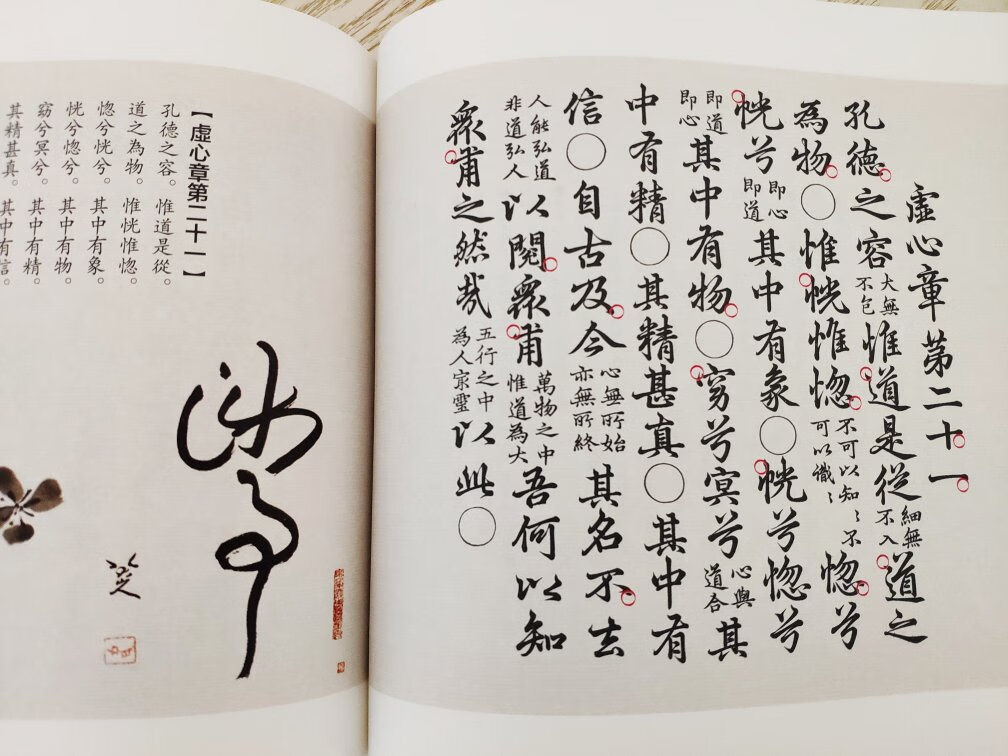 虛心章第二十一
孔德之容大無不包惟道是從細無不入道之
為物○惟恍惟惚不可以知〻不可以識〻惚兮
恍兮即心即道其中有象○恍兮惚兮
即道即心其中有物○窈兮冥兮心與道合其
中有精○其精甚真○其中有
信○自古及今心無所始亦無所終其名不去
人能弘道非道弘人以閱衆甫萬物之中惟道為大吾何以知
衆甫之然哉五行之中為人㝡靈以此○
【虛心章第二十一】
孔德之容。惟道是從。
道之為物。惟恍惟惚。
惚兮恍兮。其中有象。
恍兮惚兮。其中有物。
窈兮冥兮。其中有精。
其精甚真。其中有信。
涉事